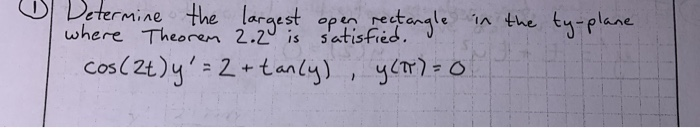 ① Determine the largest open rectangle in the ty-plane
where Theorem 2.2 is satisfied.
cos(2t)y' = 2 + tan(y) , y(π) = 0